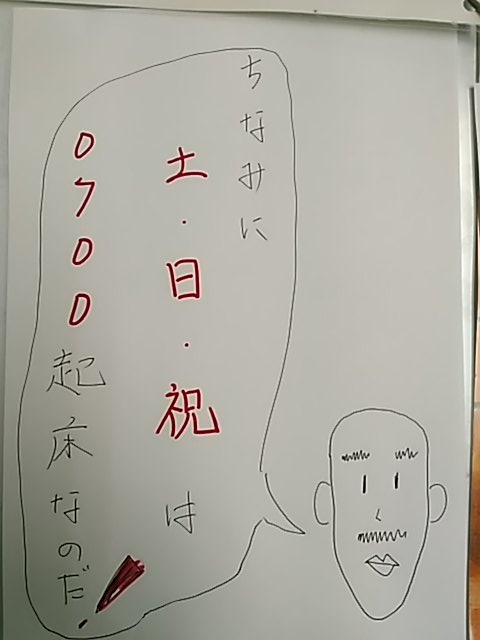 ちなみに
土・日・祝は
0700起床なのだ!